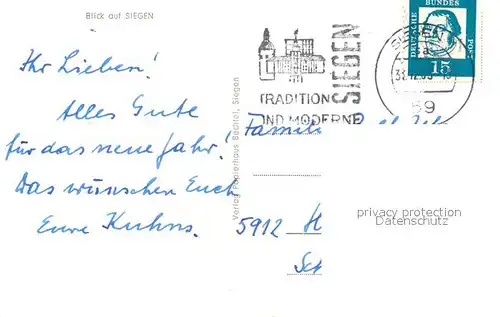 Blick auf SIEGEN
Ihr Lieben!
Alles Gute
für das neue Jahr!
Das wünschen Euch
Eure Kuhns.
Verlag Papierhaus Bechtel, Siegen
TRADITION
UND MODERNE
SIEGEN
SIEGEN
59
DEUTSCHE BUNDES POST
15
Famili
5912 H
Sch
privacy protection
Datenschutz